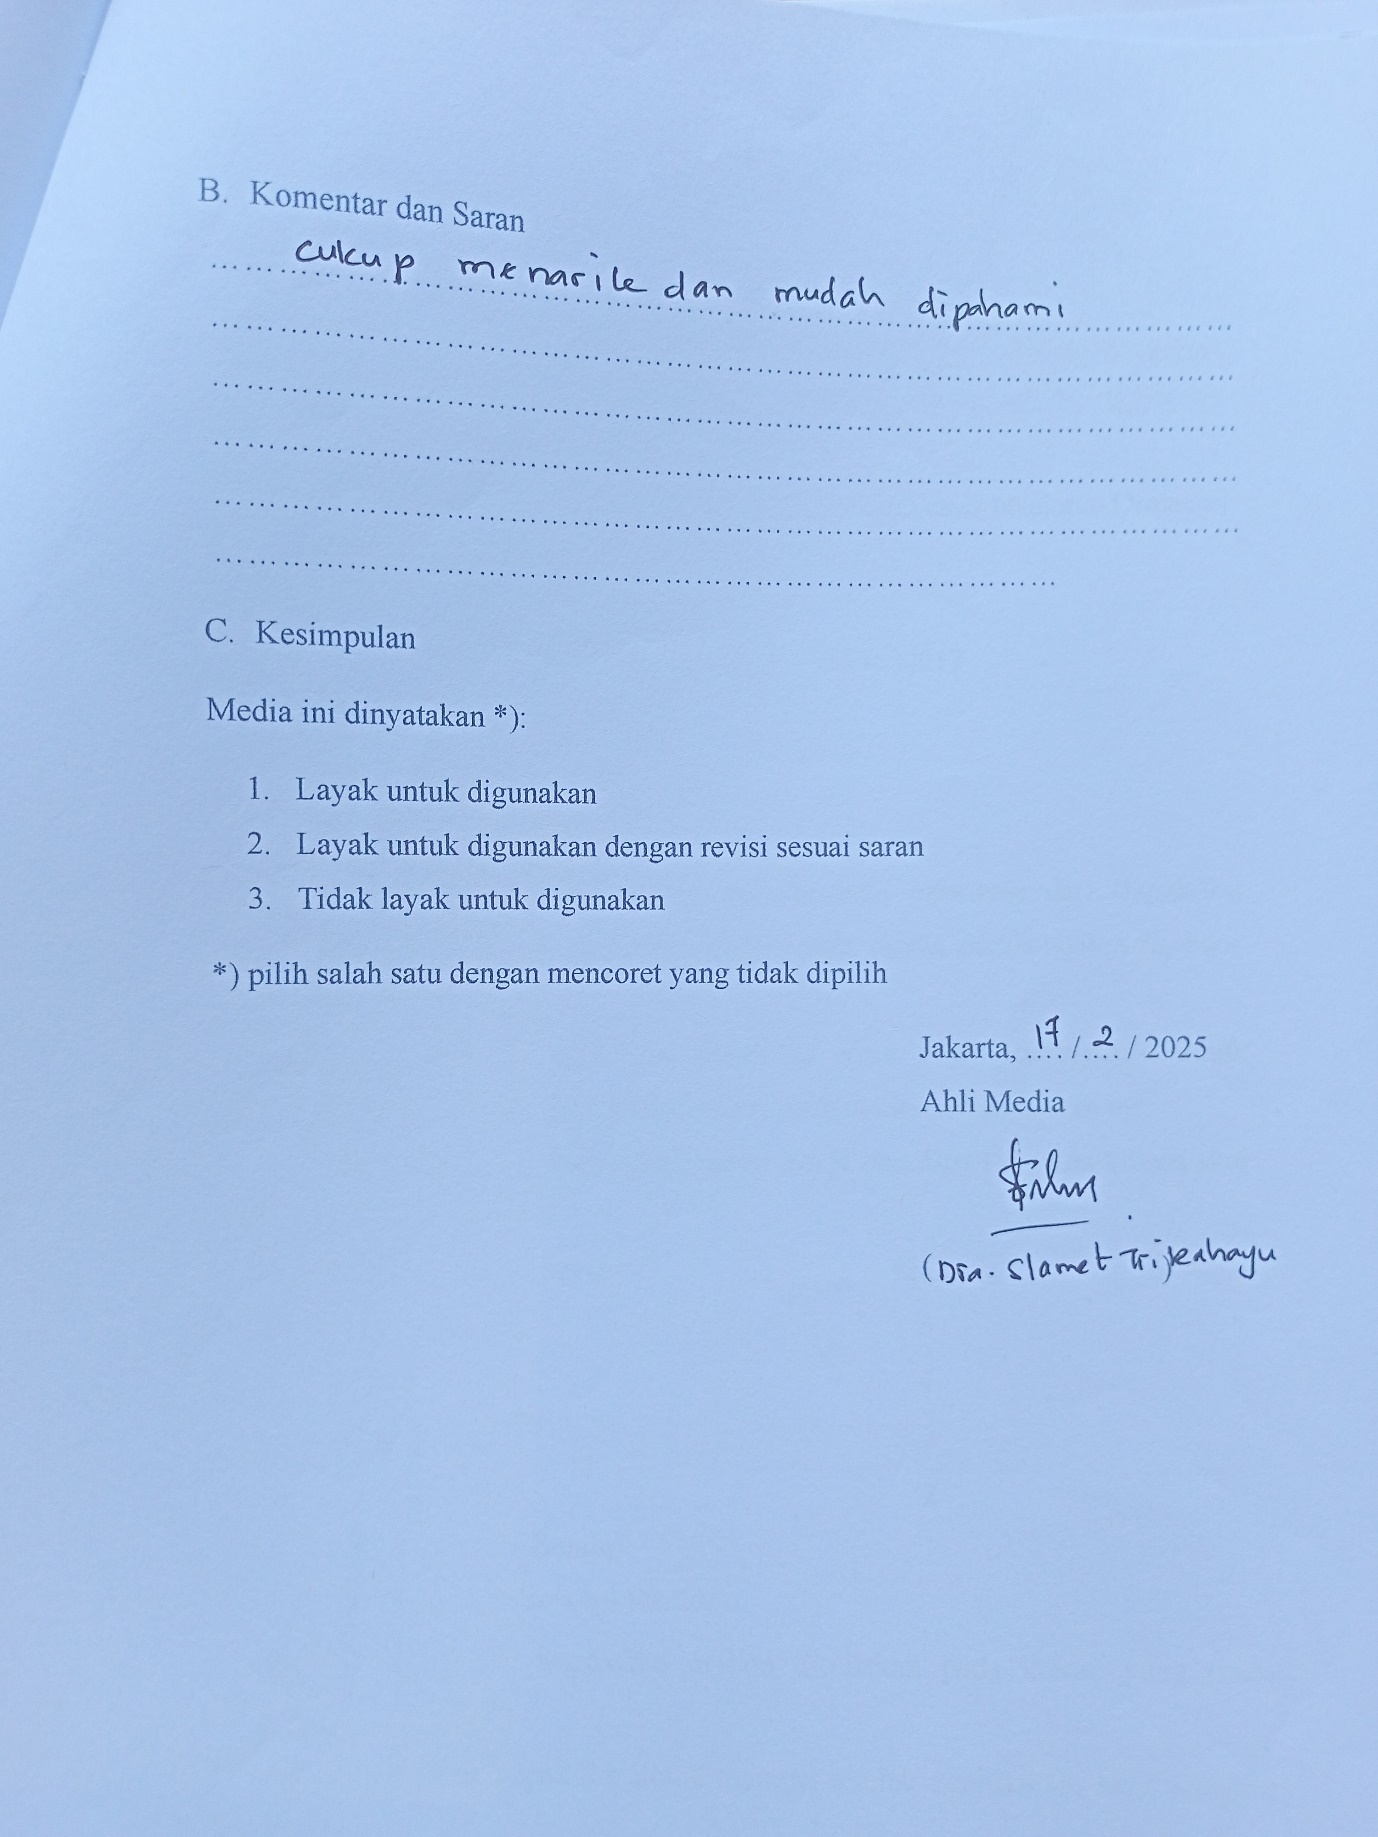 B. Komentar dan Saran
cukup menarik dan mudah dipahami
C. Kesimpulan
Media ini dinyatakan *):
1. Layak untuk digunakan
2. Layak untuk digunakan dengan revisi sesuai saran
3. Tidak layak untuk digunakan
*) pilih salah satu dengan mencoret yang tidak dipilih
Jakarta, 17 / 2 / 2025
Ahli Media
(Dra. Slamet